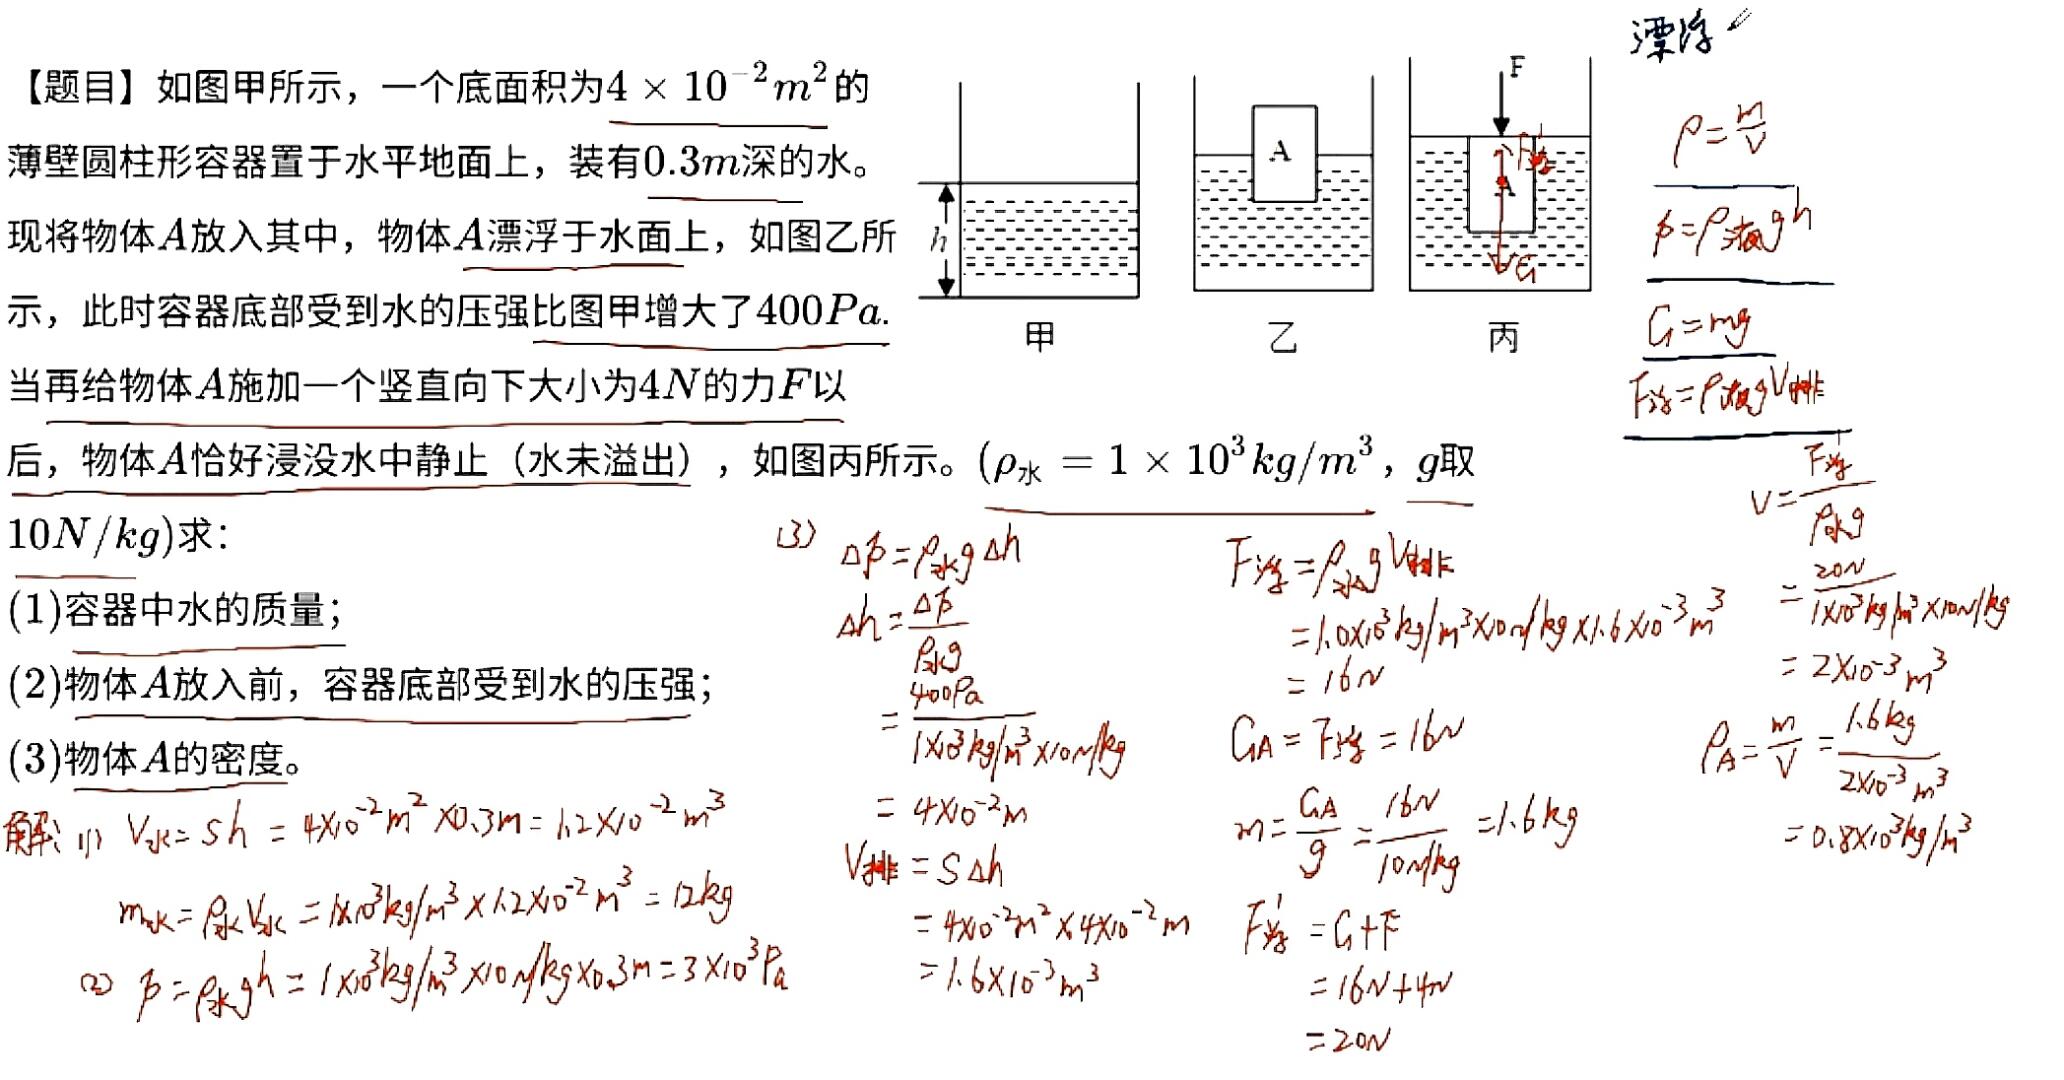 【题目】如图甲所示，一个底面积为4 × 10⁻²m²的
薄壁圆柱形容器置于水平地面上，装有0.3m深的水。
现将物体A放入其中，物体A漂浮于水面上，如图乙所
示，此时容器底部受到水的压强比图甲增大了400Pa.
当再给物体A施加一个竖直向下大小为4N的力F以
后，物体A恰好浸没水中静止（水未溢出），如图丙所示。(ρ水 = 1 × 10³kg/m³，g取
10N/kg)求：
(1)容器中水的质量；
(2)物体A放入前，容器底部受到水的压强；
(3)物体A的密度。
h
甲
A
乙
F
F浮'
A
G
丙
漂浮
ρ=m/V
p=ρ液gh
G=mg
F浮=ρ液gV排
解：(1) V水=Sh=4×10⁻²m²×0.3m=1.2×10⁻²m³
m水=ρ水V水=1×10³kg/m³×1.2×10⁻²m³=12kg
(2) p=ρ水gh=1×10³kg/m³×10N/kg×0.3m=3×10³Pa
(3) Δp=ρ水gΔh
Δh=Δp/ρ水g
=400Pa/1×10³kg/m³×10N/kg
=4×10⁻²m
V排=SΔh
=4×10⁻²m²×4×10⁻²m
=1.6×10⁻³m³
F浮=ρ水gV排
=1.0×10³kg/m³×10N/kg×1.6×10⁻³m³
=16N
GA=F浮=16N
m=GA/g=16N/10N/kg=1.6kg
F浮'=G+F
=16N+4N
=20N
V=F浮'/ρ水g
=20N/1×10³kg/m³×10N/kg
=2×10⁻³m³
ρA=m/V=1.6kg/2×10⁻³m³
=0.8×10³kg/m³